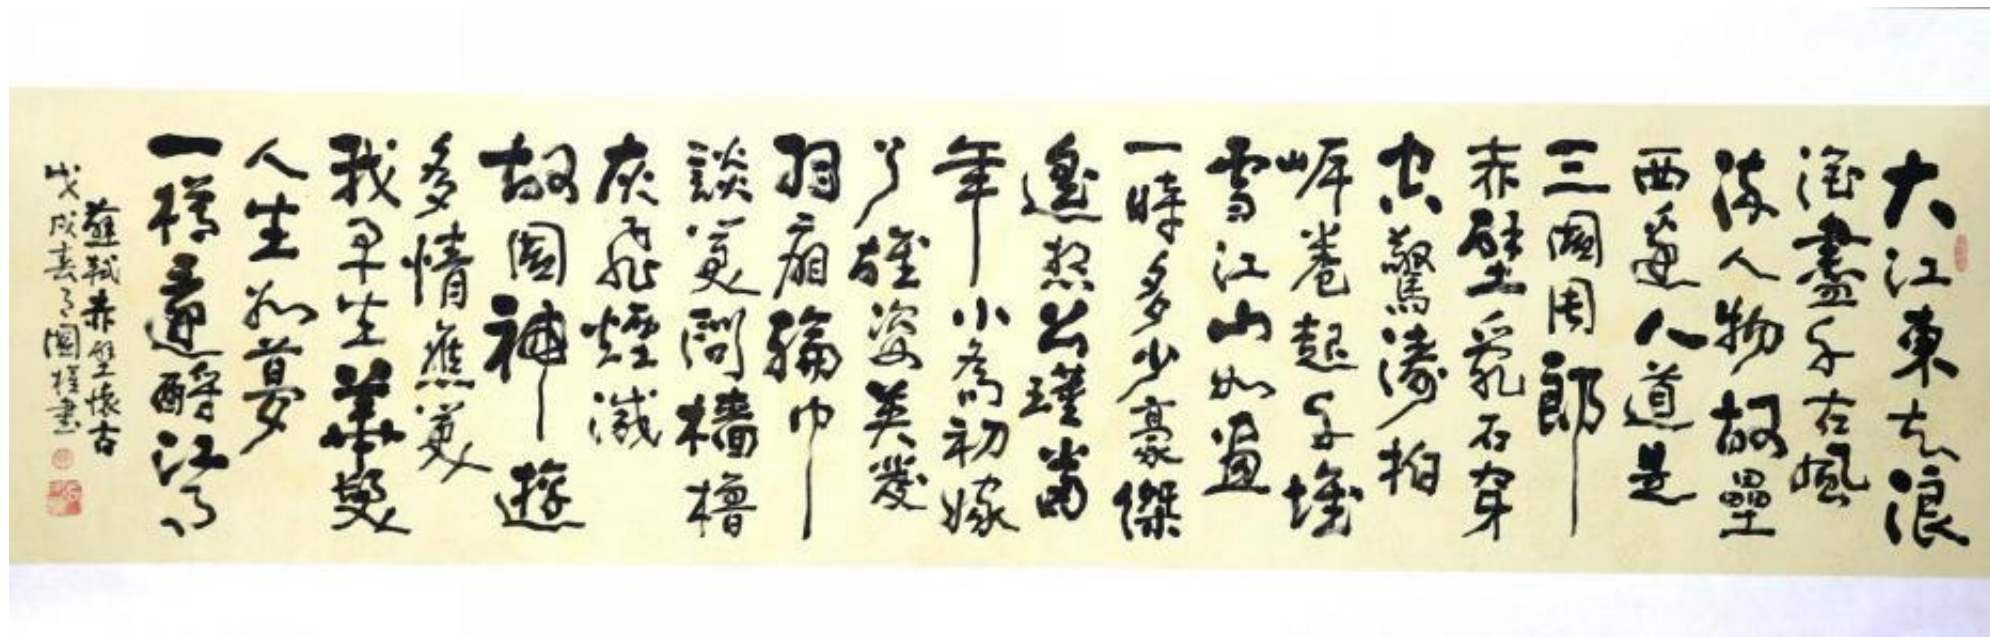 大江東去浪
淘盡千古風
流人物故壘
西邊人道是
三國周郎
赤壁亂石穿
空驚濤拍
岸卷起千堆
雪江山如畫
一時多少豪傑
遙想公瑾當
年小喬初嫁
了雄姿英發
羽扇綸巾
談笑間檣櫓
灰飛煙滅
故國神遊
多情應笑
我早生華髮
人生如夢
一樽還酹江月
蘇軾赤壁懷古
戊戌春月國權書